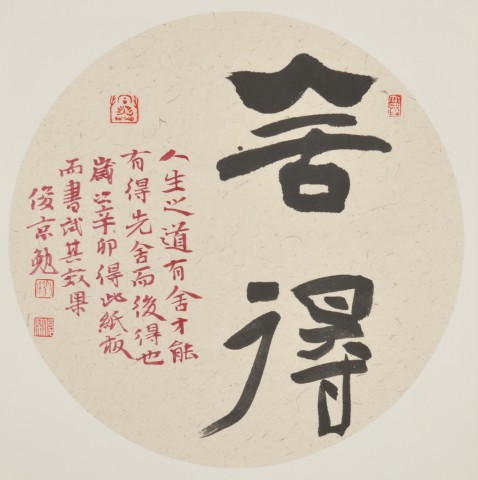 舍得
人生之道有舍才能
有得先舍而後得也
歲辛卯得此紙板
而書試其效果
俊京勉